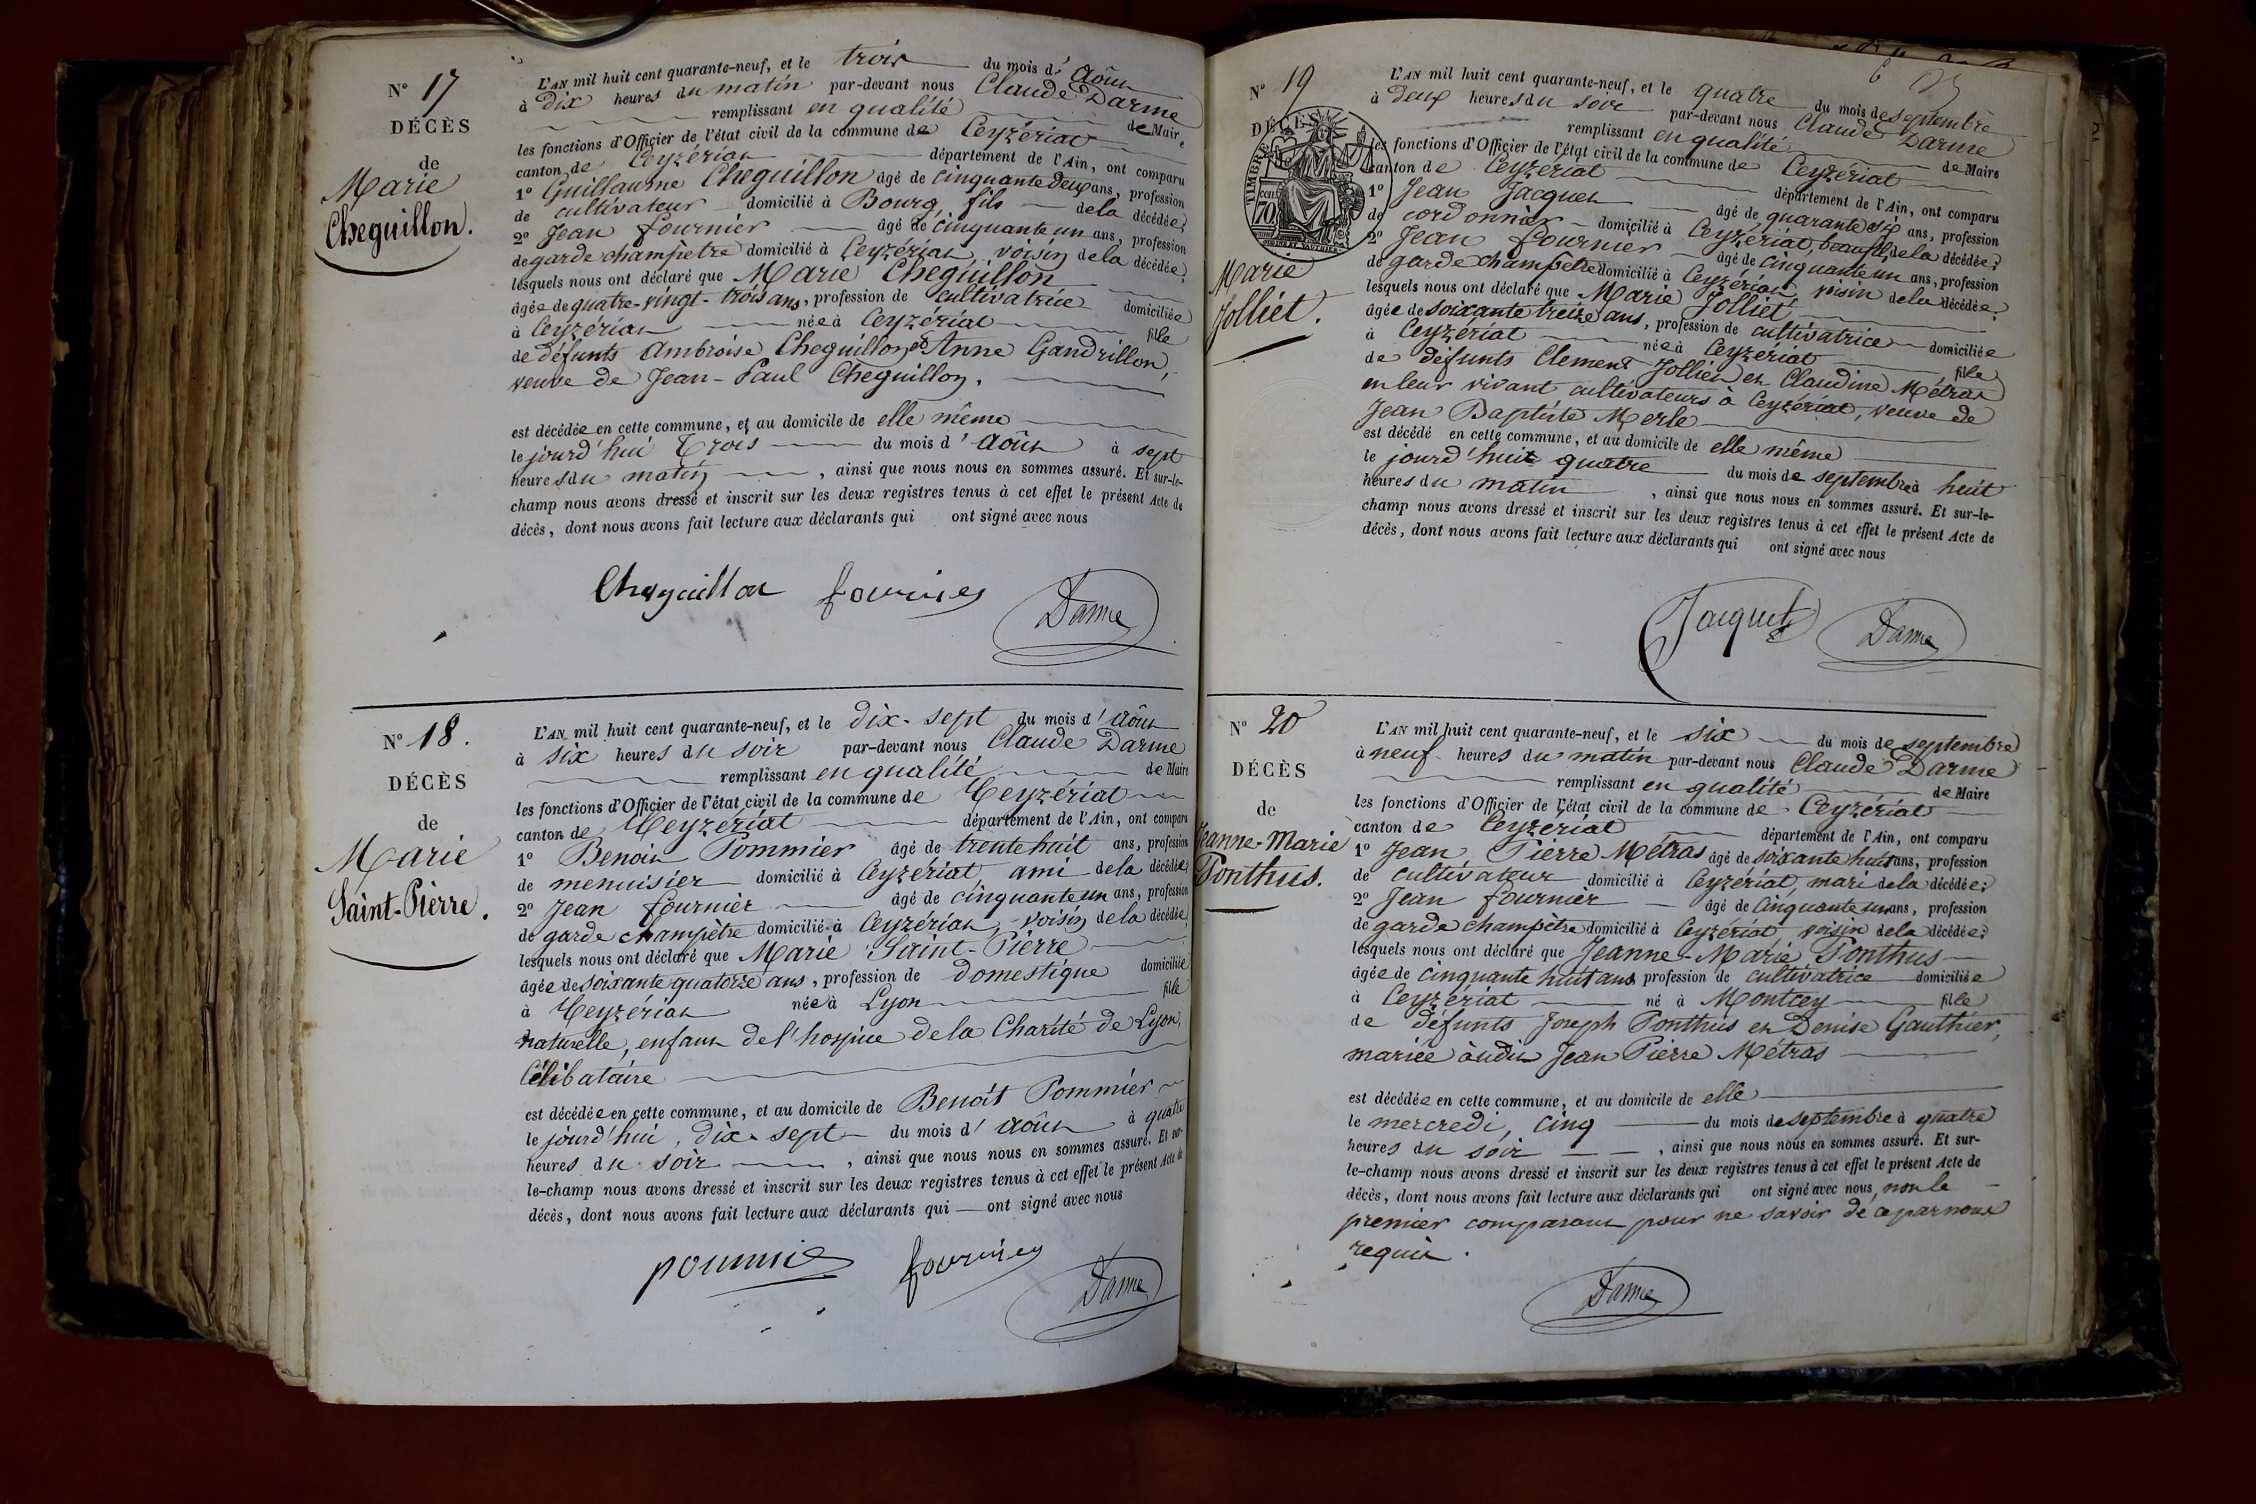 N° 17
DÉCÈS
de
Marie
Cheguillon.
L'AN mil huit cent quarante-neuf, et le trois du mois d' Août
à dix heures du matin par-devant nous Claude Darme
remplissant en qualité de Maire
les fonctions d'Officier de l'état civil de la commune de Ceyzériat
canton de Ceyzériat département de l'Ain, ont comparu
1° Guillaume Cheguillon âgé de cinquante deux ans, profession
de cultivateur domicilié à Bourg, fils de la décédée;
2° Jean Fournier âgé de cinquante un ans, profession
de garde champêtre domicilié à Ceyzériat, voisin de la décédée;
lesquels nous ont déclaré que Marie Cheguillon
âgée de quatre-vingt-trois ans, profession de cultivatrice domiciliée
à Ceyzériat née à Ceyzériat fille
de défunts Ambroise Cheguillon et Anne Gandrillon,
veuve de Jean-Paul Cheguillon.
est décédée en cette commune, et au domicile de elle même
le jourd'hui Trois du mois d' Août à sept
heures du matin, ainsi que nous nous en sommes assuré. Et sur-le-
champ nous avons dressé et inscrit sur les deux registres tenus à cet effet le présent Acte de
décès, dont nous avons fait lecture aux déclarants qui ont signé avec nous
Cheguillon fournier Darme
N° 18.
DÉCÈS
de
Marie
Saint-Pierre.
L'AN mil huit cent quarante-neuf, et le dix-sept du mois d' Août
à six heures du soir par-devant nous Claude Darme
remplissant en qualité de Maire
les fonctions d'Officier de l'état civil de la commune de Ceyzériat
canton de Ceyzeriat département de l'Ain, ont comparu
1° Benoit Pommier âgé de trente huit ans, profession
de menuisier domicilié à Ceyzériat, ami de la décédée
2° Jean Fournier âgé de cinquante un ans, profession
de garde champêtre domicilié à Ceyzériat, voisin de la décédée
lesquels nous ont déclaré que Marie Saint-Pierre
âgée de soixante quatorze ans, profession de domestique domiciliée
à Ceyzériat née à Lyon fille
naturelle, enfant de l'hospice de la Charité de Lyon,
Célibataire
est décédée en cette commune, et au domicile de Benoît Pommier
le jourd'hui, dix-sept du mois d' Août à quatre
heures du soir, ainsi que nous nous en sommes assuré. Et sur-
le-champ nous avons dressé et inscrit sur les deux registres tenus à cet effet le présent Acte de
décès, dont nous avons fait lecture aux déclarants qui ont signé avec nous
poumie fournier Darme
N° 19
DÉCÈS
TIMBRE
70
Marie
Jolliet.
L'AN mil huit cent quarante-neuf, et le quatre du mois de septembre
à deux heures du soir par-devant nous Claude Darme
remplissant en qualité de Maire
les fonctions d'Officier de l'état civil de la commune de Ceyzériat
canton de Ceyzériat département de l'Ain, ont comparu
1° Jean Jacquet âgé de quarante six ans, profession
de cordonnier domicilié à Ceyzériat, beaufils de la décédée;
2° Jean Fournier âgé de cinquante un ans, profession
de garde champêtre domicilié à Ceyzériat, voisin de la décédée;
lesquels nous ont déclaré que Marie Jolliet
âgée de soixante treize ans, profession de cultivatrice domiciliée
à Ceyzériat née à Ceyzériat fille
de défunts Clement Jolliet et Claudine Métras
en leur vivant cultivateurs à Ceyzériat, veuve de
Jean Baptiste Merle
est décédé en cette commune, et au domicile de elle même
le jourd'hui quatre du mois de septembre à huit
heures du matin, ainsi que nous nous en sommes assuré. Et sur-le-
champ nous avons dressé et inscrit sur les deux registres tenus à cet effet le présent Acte de
décès, dont nous avons fait lecture aux déclarants qui ont signé avec nous
Jacquet Darme
N° 20
DÉCÈS
de
Jeanne-Marie
Ponthus.
L'AN mil huit cent quarante-neuf, et le six du mois de septembre
à neuf heures du matin par-devant nous Claude Darme
remplissant en qualité de Maire
les fonctions d'Officier de l'état civil de la commune de Ceyzériat
canton de Ceyzériat département de l'Ain, ont comparu
1° Jean Pierre Métras âgé de soixante huit ans, profession
de cultivateur domicilié à Ceyzériat, mari de la décédée;
2° Jean Fournier âgé de cinquante un ans, profession
de garde champêtre domicilié à Ceyzériat voisin de la décédée;
lesquels nous ont déclaré que Jeanne-Marie Ponthus
âgée de cinquante huit ans profession de cultivatrice domiciliée
à Ceyzériat né à Montcey fille
de défunts Joseph Ponthus et Denise Gauthier,
mariée àudit Jean Pierre Métras
est décédée en cette commune, et au domicile de elle
le mercredi, cinq du mois de septembre à quatre
heures du soir, ainsi que nous nous en sommes assuré. Et sur-
le-champ nous avons dressé et inscrit sur les deux registres tenus à cet effet le présent Acte de
décès, dont nous avons fait lecture aux déclarants qui ont signé avec nous, non le
premier comparant pour ne savoir de ce par nous
requis.
Darme